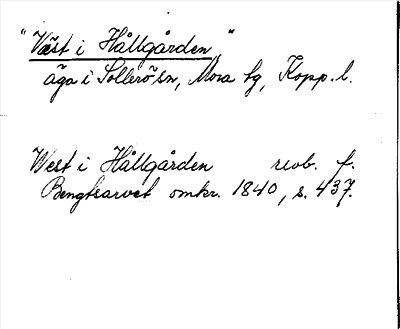 "Väst i Hållgården"
äga i Sollerö sn, Mora tg, Kopp. l.
West i Hållgården reob. f.
Bengtsarvet omkr. 1840, s. 437.